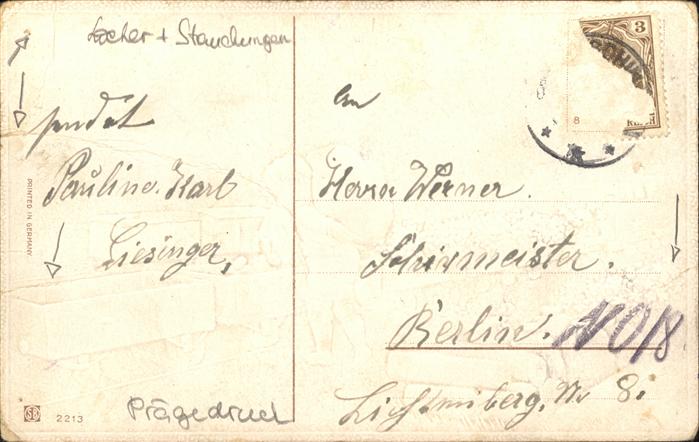 Löcher + Stauchungen
sendet
Pauline. Karl
Giesinger,
PRINTED IN GERMANY
SB
2213
Prägedruck
3
8
An
Herrn Werner.
Schirmeister.
Berlin. NO18
Lichtenberg, No 8.